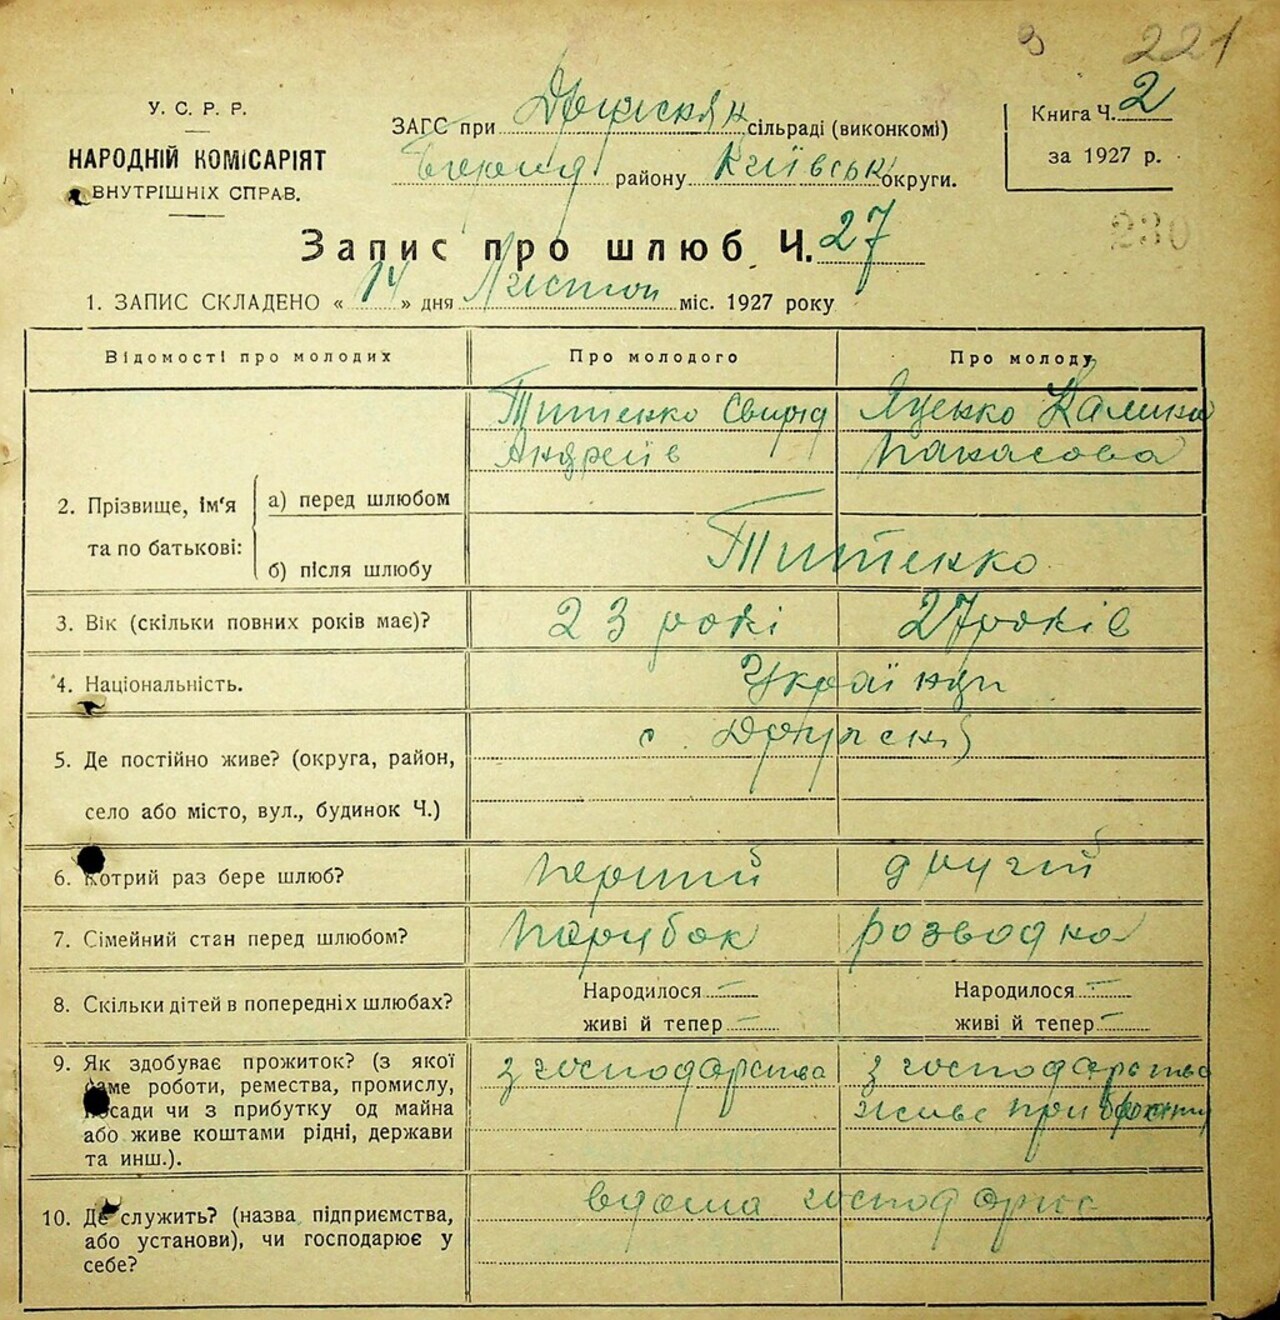 221
У. С. Р. Р.
НАРОДНІЙ КОМІСАРІЯТ
ВНУТРІШНІХ СПРАВ.
ЗАГС при сільраді (виконкомі)
району Київськ округи.
Книга Ч. 2
за 1927 р.
230
Запис про шлюб Ч. 27
1. ЗАПИС СКЛАДЕНО « 14 » дня Листоп міс. 1927 року
Відомості про молодих
Про молодого
Про молоду
2. Прізвище, ім'я
та по батькові:
а) перед шлюбом
Титенко Свирид
Андреїв
Яценко Калина
Панасова
б) після шлюбу
Титенко
3. Вік (скільки повних років має)?
23 рокі
27 років
4. Національність.
Українци
5. Де постійно живе? (округа, район,
село або місто, вул., будинок Ч.)
с.
6. Котрий раз бере шлюб?
перший
другий
7. Сімейний стан перед шлюбом?
парубок
розводка
8. Скільки дітей в попередніх шлюбах?
Народилося —
живі й тепер —
Народилося —
живі й тепер —
9. Як здобуває прожиток? (з якої
саме роботи, ремества, промислу,
посади чи з прибутку од майна
або живе коштами рідні, держави
та инш.).
з господарства
з господарства
живе при
10. Де служить? (назва підприємства,
або установи), чи господарює у
себе?
вдома господарює